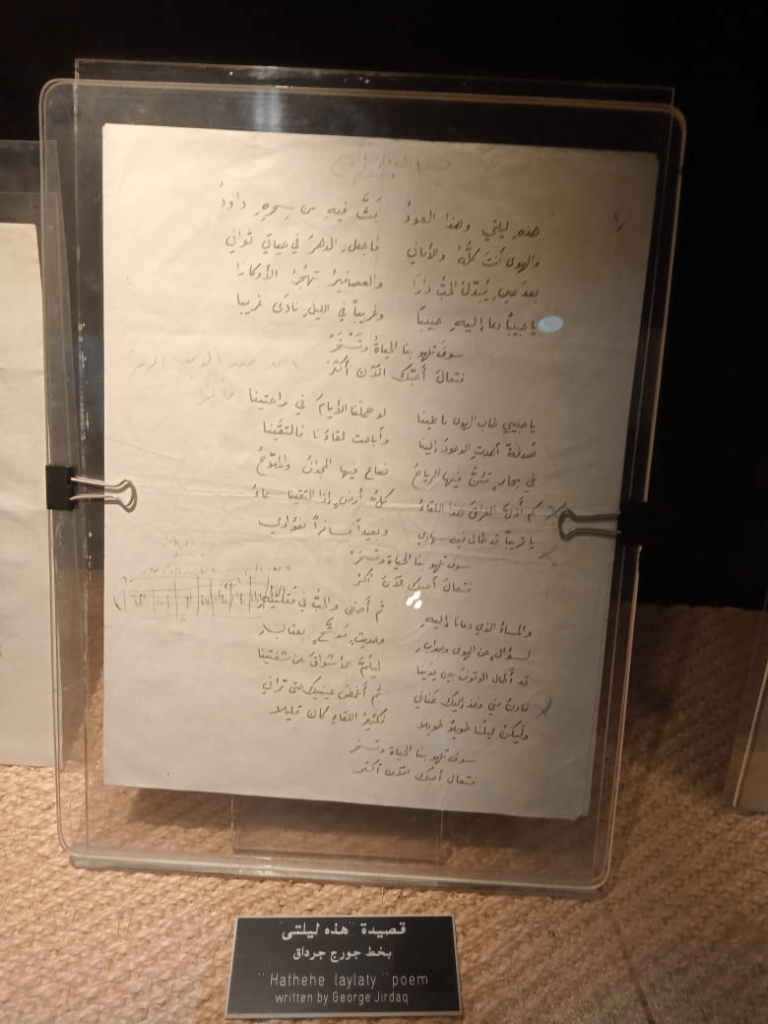 ١
هذه ليلتي وهذا العودُ بَثَّ فيهِ من سِحرِهِ داودُ
والهوى أنتَ كلُّهُ والأماني فاجعلِ الدهرَ في حياتي ثواني
بعدَ حينٍ يُبدّلُ الحبُّ دارَا والعصافيرُ تهجُرُ الأوكارا
يا حبيباً دعا إليهِ حبيبا وغريباً في الليلِ نادَى غريبا
سوفَ تلهو بنا الحياةُ وتَسْخَرْ
فتعالَ أُحبُّك الآنَ أكثرْ
يا حبيبي طاب الهوى ما علينا لو حملنا الأيامَ في راحتينا
صُدفةٌ أهدتِ الوجودَ إلينا وأباحت لقاءَنا فالتقَينا
في بحارٍ تئنُّ فيها الرياحُ ضاع فيها المجدافُ والملّاحُ
كم أذلَّ الفراقُ هذا اللقاءُ كلُّ أرضٍ إذا التقينا سماءُ
يا قريباً قد طال فيه سهادي وبعيداً مسافراً بفؤادي
سوف تلهو بنا الحياة وتسخرْ
فتعالَ أحبك الآنَ أكثرْ
والمساءُ الذي دعانا إليهِ ثم أصغى والحبُّ في مُقلتيهِ
لسؤالٍ عن الهوى وجوابِ وحديثٍ مُوشَّحٍ بعتابِ
قد أطال الوقوفَ بين يدينا ليلُمَّ الأشواقَ عن شفتينا
فادنُ مني وخذ إليك حناني ثم أغمضْ عينيك حتى تراني
وليكنْ ليلُنا طويلاً طويلا فكثيرُ اللقاءِ كان قليلا
سوف تلهو بنا الحياة وتسخر
فتعال أحبك الآن أكثر
قصيدة "هذه ليلتي"
بخط جورج جرداق
"Hathehe laylaty" poem
written by George Jirdaq